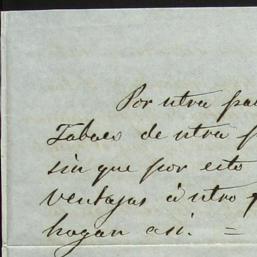 Por ntra pa
Tabaco de ntra p
sin que por esto
ventajas á ntro p
hagan asi. =